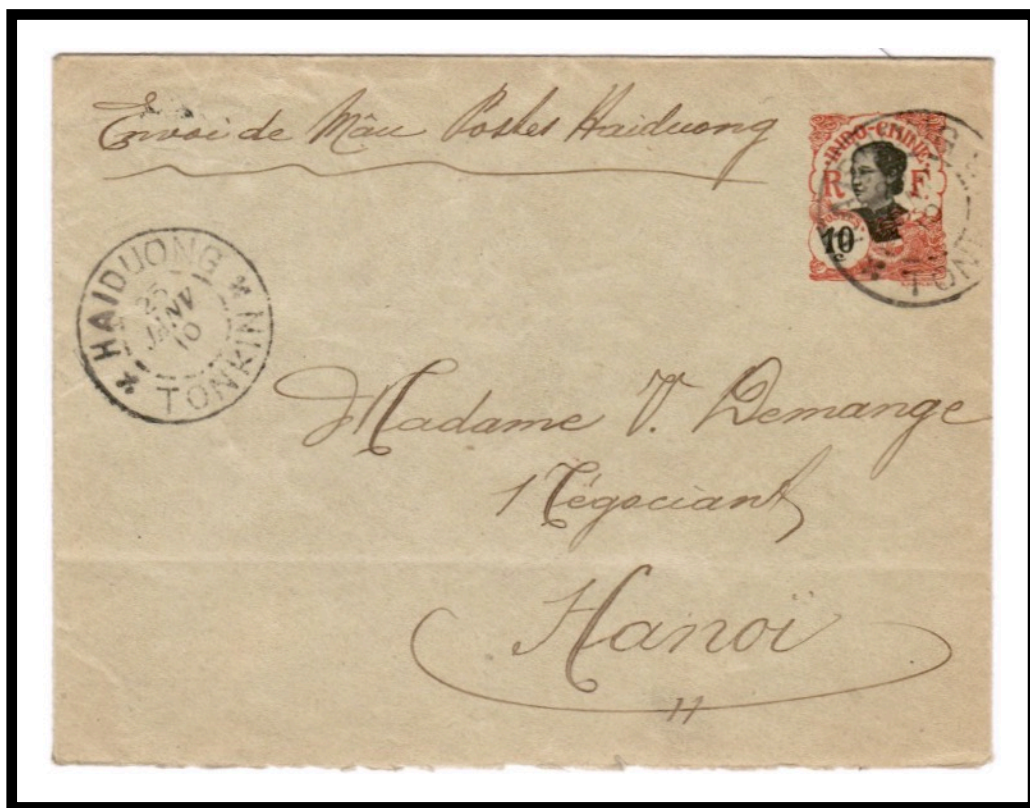 Envoi de Mâu Postes Haiduong
INDO-CHINE
R F
POSTES
10
c
HAIDUONG
25
JANV
10
TONKIN
TONK
Madame V. Demange
Négociant
Hanoï